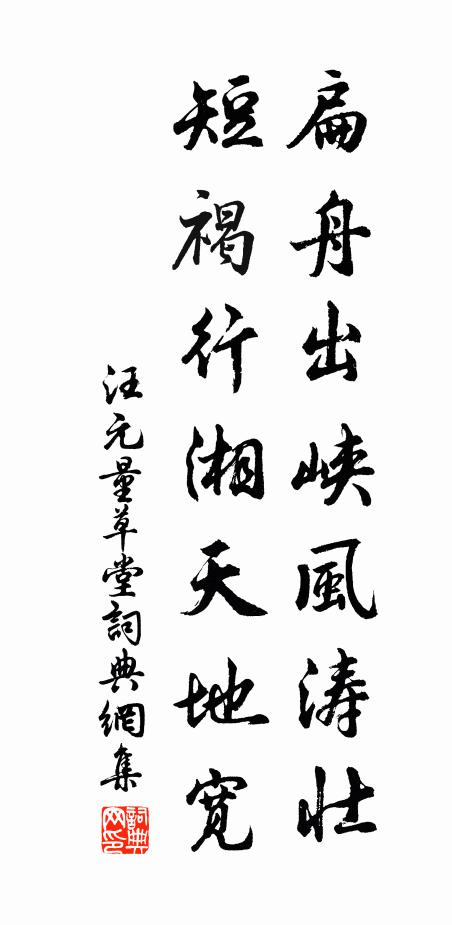 扁舟出峽風涛壮
短褐行湘天地寛
汪元量草堂詞典網集
詞典網印